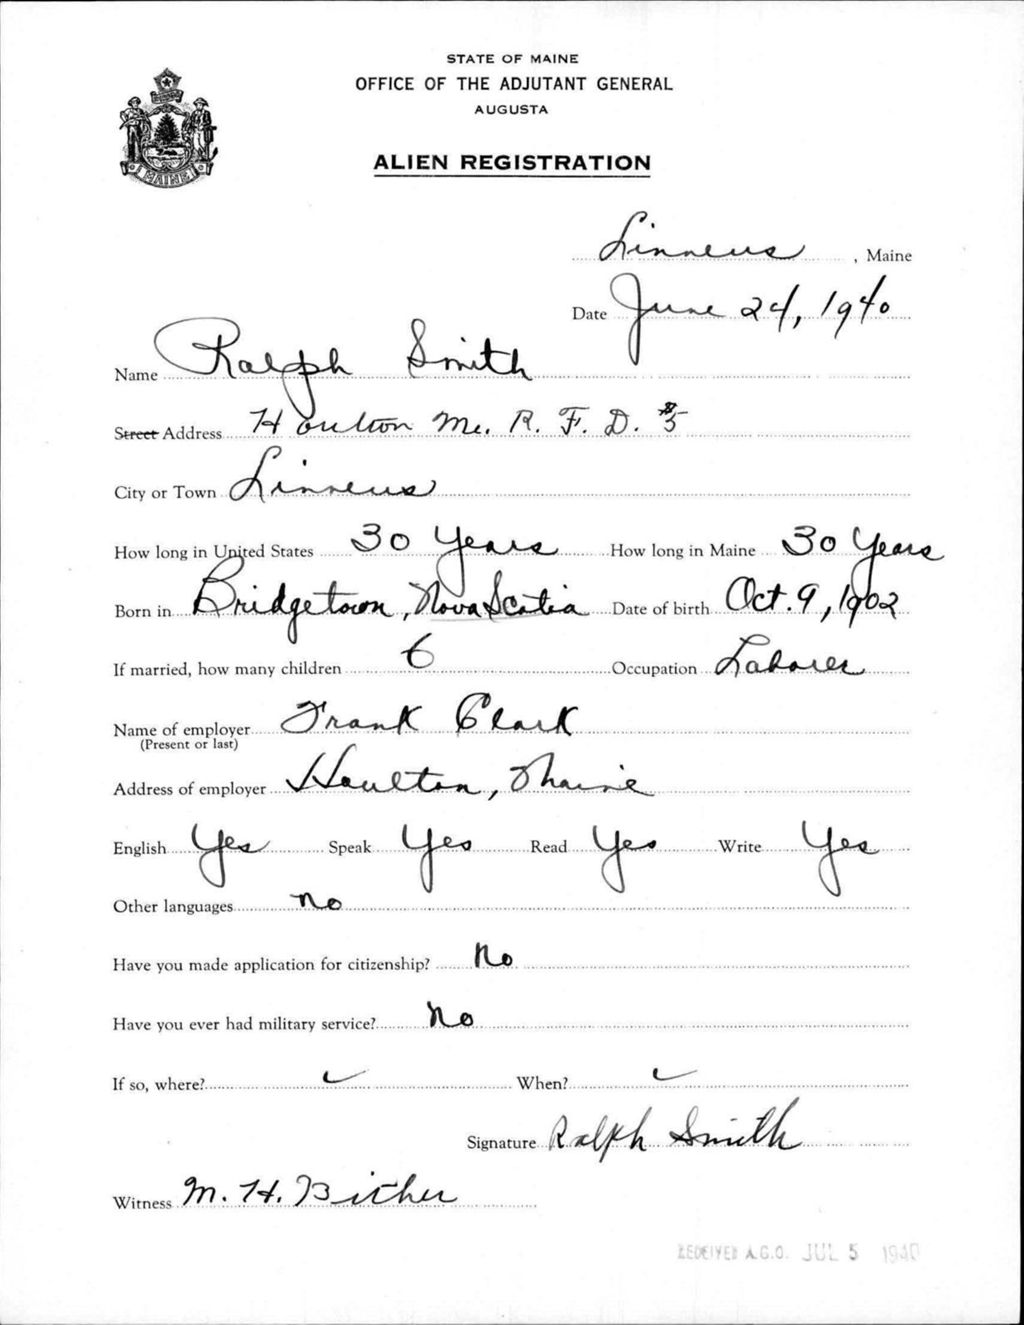 STATE OF MAINE
OFFICE OF THE ADJUTANT GENERAL
AUGUSTA
MAINE
ALIEN REGISTRATION
Linneus, Maine
Date June 24, 1940
Name Ralph Smith
Street Address Houlton Me. R. F. D. #5
City or Town Linneus
How long in United States 30 Years How long in Maine 30 Years
Born in Bridgetown, Nova Scotia Date of birth Oct. 9, 1902
If married, how many children 6 Occupation Laborer
Name of employer Frank Clark
(Present or last)
Address of employer Houlton, Maine
English Yes Speak Yes Read Yes Write Yes
Other languages no
Have you made application for citizenship? No
Have you ever had military service? No
If so, where? When?
Signature Ralph Smith
Witness M. H. Bither
RECEIVED A.G.O. JUL 5 1940